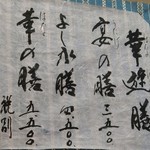 華遊膳
宴の膳 三、五〇〇
よし水膳 四、五〇〇
華の膳 五、五〇〇
税別